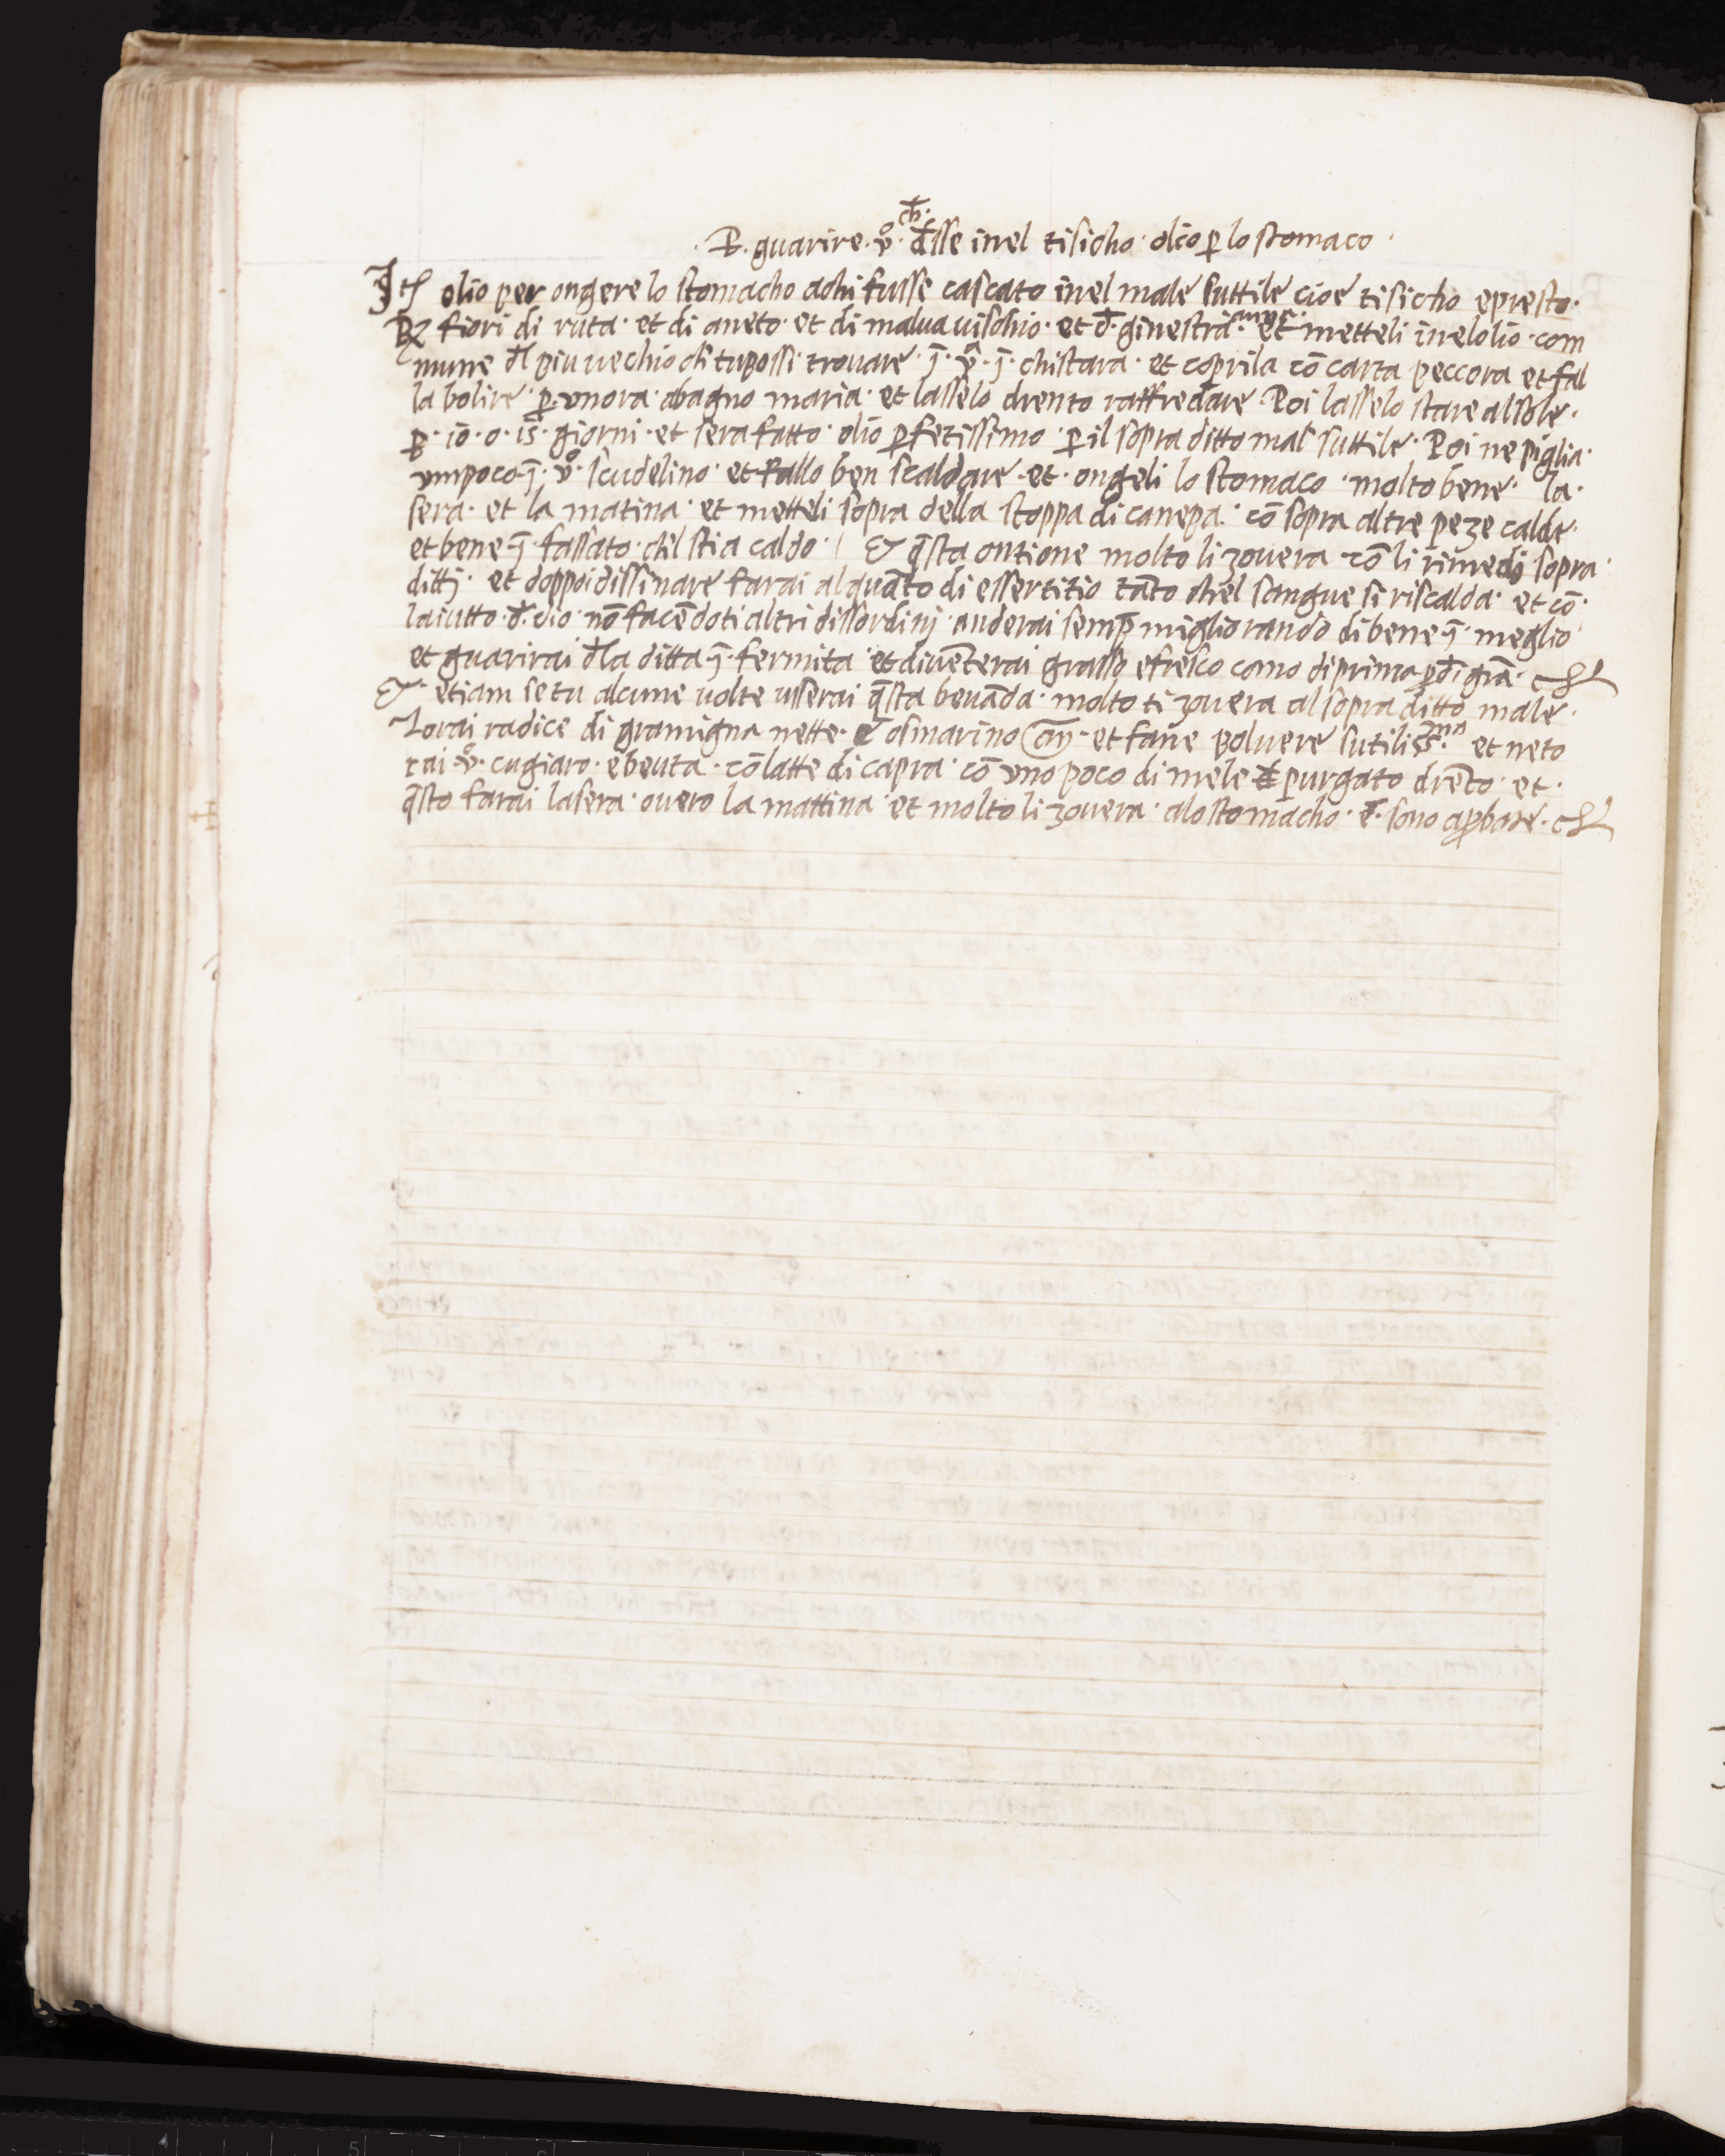 · P. guarire · vº · ch̄ · desse inel tisicho · olio ꝑ lo stomaco ·
Itē olio per ongere lo stomacho achi fusse cascato inel male suttile cioe tisicho epresto ·
Rx fiori di ruta · et di aneto · et di maluauischio · et d̄ · ginestra · et metteli inelolio · com
mune d̄l piu uechio ch̄ tupossi trouare · ī · vª · ī · chistara · et coprila cō carta peccora et fal
la bolire · ꝑ · vnora · abagno maria · et lasselo drento raffredare · Poi lasselo stare alsole ·
ꝑ · 10 · o · 15 · giorni · et sera fatto · olio ꝑfetissimo · ꝑ il sopra ditto mal suttile · Poi ne piglia ·
vmpoco · ī · vº · scudelino · et fallo ben scaldare · et · ongeli lo stomaco · molto bene · la ·
sera · et la matina · et metteli sopra della stoppa di canepa · cō sopra altre peze calde ·
et bene · ī · fassato · ch̄l stia caldo · / & q̄sta ontione molto li zouera cō li rimedij sopra ·
dittj · et doppoi dissinare farai alquāto di essertitio tāto chel sangue si riscalda · et cō ·
laiutto · d̄ · dio · nō facēdoti altri dissordinj · anderai semp̄ migliorando di bene · ī · meglio
et guarirai d̄la ditta · ī · fermita · et diuēterai grasso efresco como diprima ꝑ di grā ·
& · etiam se tu alcune uolte usserai q̄sta beuāda · molto ti zouera al sopra ditto male ·
Torai radice di gramigna nette · e osmarino añ · et fane poluere sutiliss.ma et neto
rai · vº · cugiaro · e beuta · cō latte di capra · cō vno poco di mele purgato drēto · et ·
q̄sto farai lasera · ouero la mattina · et molto li zouera · alo stomacho · e · sono aꝓbate ·